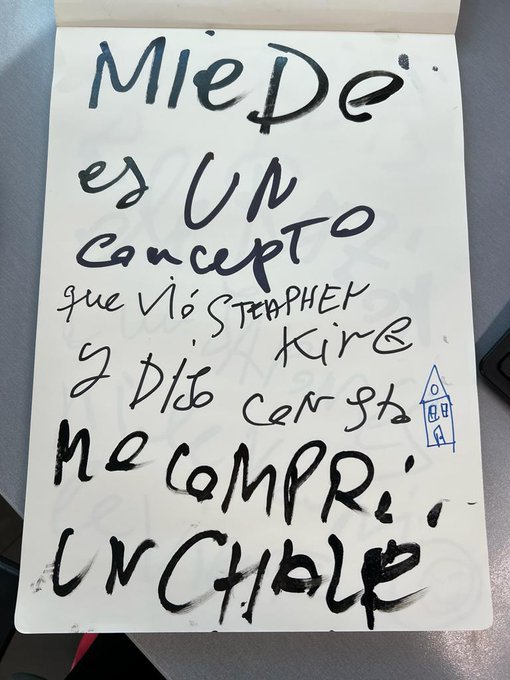 MIEDO
es UN
concepTO
que vió STEAPHEN
KING
y DIJO con esto
ME COMPRÉ..
UN CHALE